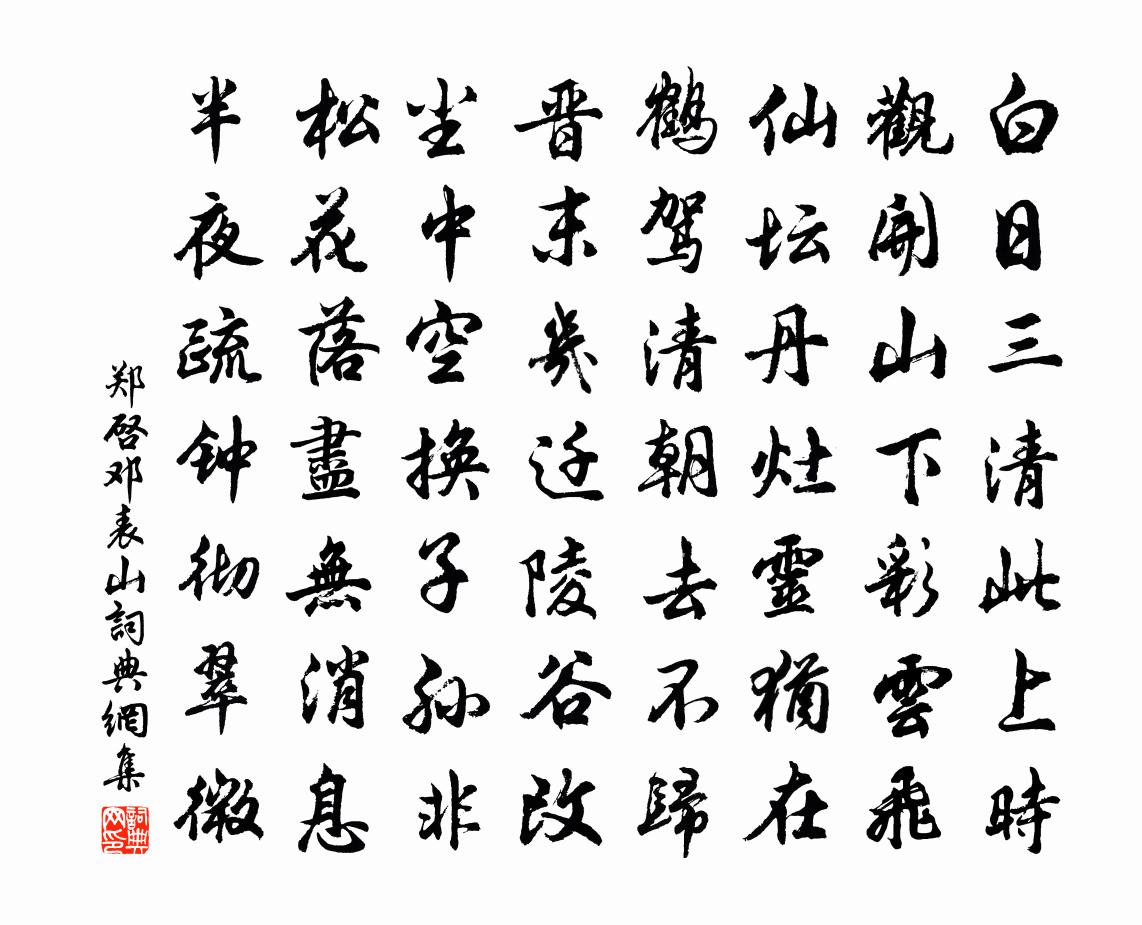 白日三清此上時
觀開山下彩雲飛
仙坛丹灶靈猶在
鶴駕清朝去不歸
晋末幾迁陵谷改
尘中空换子孙非
松花落盡無消息
半夜疏钟彻翠微
郑啓邓表山詞典網集
詞典网印